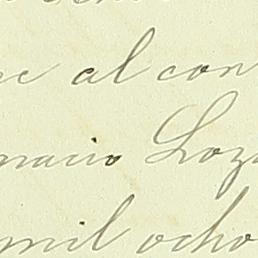 al con
nacio Loz
mil ocho